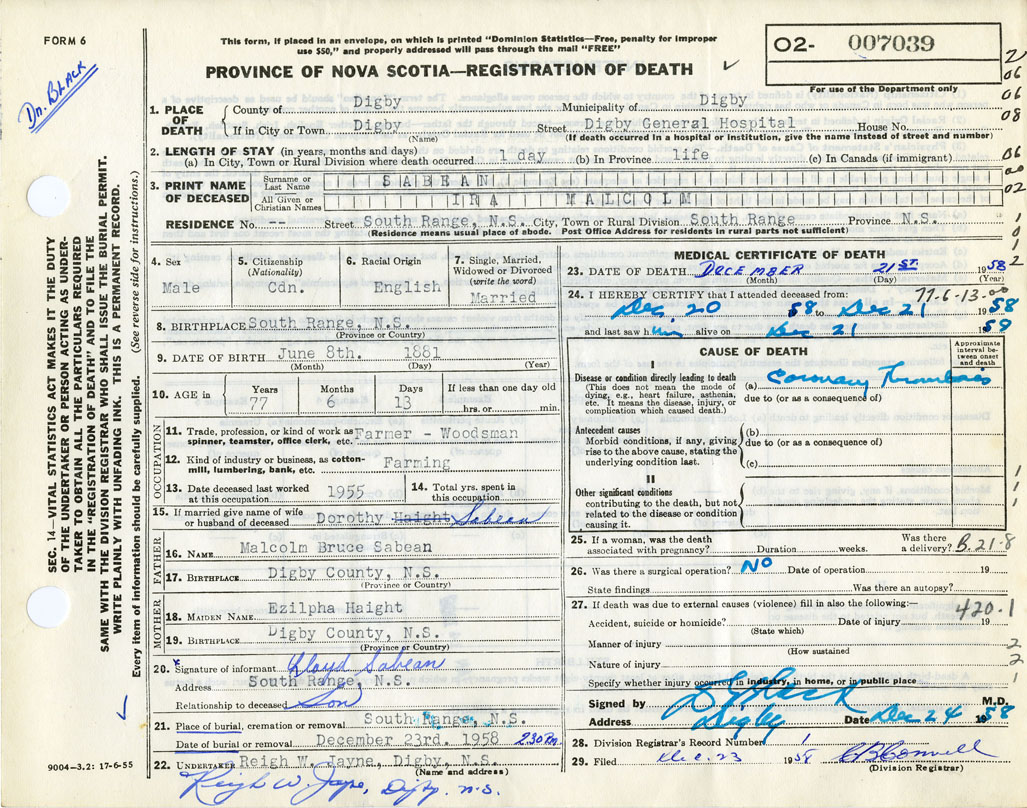 FORM 6
Dr. BLACK
This form, if placed in an envelope, on which is printed "Dominion Statistics—Free, penalty for improper
use $50," and properly addressed will pass through the mail "FREE"
PROVINCE OF NOVA SCOTIA—REGISTRATION OF DEATH ✓
02- 007039
For use of the Department only
2
06
06
08
06
00
02
1
0
1
2
SEC. 14—VITAL STATISTICS ACT MAKES IT THE DUTY
OF THE UNDERTAKER OR PERSON ACTING AS UNDER-
TAKER TO OBTAIN ALL THE PARTICULARS REQUIRED
IN THE "REGISTRATION OF DEATH" AND TO FILE THE
SAME WITH THE DIVISION REGISTRAR WHO SHALL ISSUE THE BURIAL PERMIT.
WRITE PLAINLY WITH UNFADING INK. THIS IS A PERMANENT RECORD.
Every item of information should be carefully supplied. (See reverse side for instructions.)
1. PLACE OF DEATH { County of Digby Municipality of Digby
If in City or Town Digby Street Digby General Hospital House No.
(Name) (If death occurred in a hospital or institution, give the name instead of street and number)
2. LENGTH OF STAY (in years, months and days)
(a) In City, Town or Rural Division where death occurred 1 day (b) In Province life (c) In Canada (if immigrant)
3. PRINT NAME OF DECEASED { Surname or Last Name SABEAN
All Given or Christian Names IRA MALCOLM
RESIDENCE No. -- Street South Range, N.S. City, Town or Rural Division South Range Province N.S.
(Residence means usual place of abode. Post Office Address for residents in rural parts not sufficient)
4. Sex Male
5. Citizenship (Nationality) Cdn.
6. Racial Origin English
7. Single, Married, Widowed or Divorced (write the word) Married
8. BIRTHPLACE South Range, N.S.
(Province or Country)
9. DATE OF BIRTH June 8th. 1881
(Month) (Day) (Year)
10. AGE in { Years 77 Months 6 Days 13 If less than one day old hrs. or min.
OCCUPATION
11. Trade, profession or kind of work as spinner, teamster, office clerk, etc. Farmer - Woodsman
12. Kind of industry or business, as cotton-mill, lumbering, bank, etc. Farming
13. Date deceased last worked at this occupation 1955 14. Total yrs. spent in this occupation
15. If married give name of wife or husband of deceased Dorothy Haight Sabean
FATHER
16. NAME Malcolm Bruce Sabean
17. BIRTHPLACE Digby County, N.S.
(Province or Country)
MOTHER
18. MAIDEN NAME Ezilpha Haight
19. BIRTHPLACE Digby County, N.S.
(Province or Country)
20. Signature of informant Lloyd Sabean
Address South Range, N.S.
Relationship to deceased Son
21. Place of burial, cremation or removal South Range, N.S.
Date of burial or removal December 23rd. 1958 2 30 Pm
22. UNDERTAKER Reigh W. Jayne, Digby, N.S.
(Name and address)
Reigh W. Jayne, Digby, N.S.
9004—3.2: 17-6-55
MEDICAL CERTIFICATE OF DEATH
23. DATE OF DEATH DECEMBER 21ST 1958
(Month) (Day) (Year)
77-6-13-00
24. I HEREBY CERTIFY that I attended deceased from:
Dec. 20 58 to Dec 21 1958
and last saw him alive on Dec 21 1958
CAUSE OF DEATH
Approximate interval between onset and death
I
Disease or condition directly leading to death (a) Coronary Thrombosis
(This does not mean the mode of dying, e.g., heart failure, asthenia, etc. It means the disease, injury, or complication which caused death.)
due to (or as a consequence of)
Antecedent causes
Morbid conditions, if any, giving rise to the above cause, stating the underlying condition last.
(b)
due to (or as a consequence of)
(c)
II
Other significant conditions
contributing to the death, but not related to the disease or condition causing it.
1
1
1
25. If a woman, was the death associated with pregnancy? Duration weeks. Was there a delivery? B.21-8
26. Was there a surgical operation? NO Date of operation 19
State findings Was there an autopsy?
27. If death was due to external causes (violence) fill in also the following:— 420-1
Accident, suicide or homicide? Date of injury 19
(State which)
Manner of injury 2
(How sustained
Nature of injury 2
Specify whether injury occurred in industry, in home, or in public place 1
Signed by M.D.
Address Digby Date Dec 24 1958
28. Division Registrar's Record Number 1
29. Filed Dec. 23 1958
(Division Registrar)